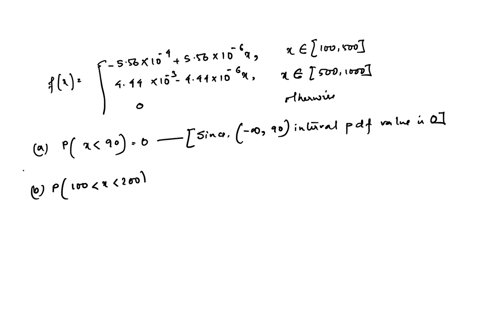 -5.56×10⁻⁴ + 5.56×10⁻⁶x, x ∈ [100,500]
f(x) = { 4.44 ×10⁻³ - 4.44×10⁻⁶x, x ∈ [500,1000]
0 otherwise
(a) P( x < 90) = 0 — [Since, (-∞, 90) interval pdf value is 0]
(b) P( 100 < x < 200)